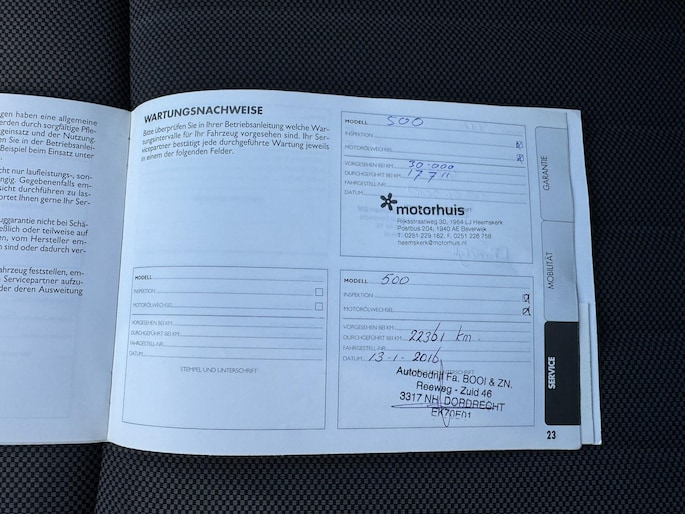 gen haben eine allgemeine
erden durch sorgfältige Pfle-
geinsatz und der Nutzung.
en Sie in der Betriebsanlei-
Beispiel beim Einsatz unter
cht nur laufleistungs-, son-
ngig. Gegebenenfalls em-
sicht durchführen zu las-
ortet Ihnen gerne Ihr Ser-
uggarantie nicht bei Schä-
eßlich oder teilweise auf
n, vom Hersteller em-
n sind oder dadurch ver-
ahrzeug feststellen, em-
Servicepartner aufzu-
der deren Ausweitung
WARTUNGSNACHWEISE
Bitte überprüfen Sie in Ihrer Betriebsanleitung welche War-
tungsintervalle für Ihr Fahrzeug vorgesehen sind. Ihr Ser-
vicepartner bestätigt jede durchgeführte Wartung jeweils
in einem der folgenden Felder.
MODELL
INSPEKTION
MOTORÖLWECHSEL
VORGESEHEN BEI KM
DURCHGEFÜHRT BEI KM
FAHRGESTELL-NR.
DATUM
STEMPEL UND UNTERSCHRIFT
MODELL 500
INSPEKTION
MOTORÖLWECHSEL
VORGESEHEN BEI KM 30.000
DURCHGEFÜHRT BEI KM
FAHRGESTELL-NR.
DATUM
motorhuis
Rijksstraatweg 30, 1964 LJ Heemskerk
Postbus 204, 1940 AE Beverwijk
T. 0251 229 162, F. 0251 226 758
heemskerk@motorhuis.nl
MODELL 500
INSPEKTION
MOTORÖLWECHSEL
VORGESEHEN BEI KM
DURCHGEFÜHRT BEI KM 22361 km.
FAHRGESTELL-NR.
DATUM 13-1-2016
Autobedrijf Fa. BOOI & ZN.
Reeweg - Zuid 46
3317 NH DORDRECHT
GARANTIE
MOBILITÄT
SERVICE
23